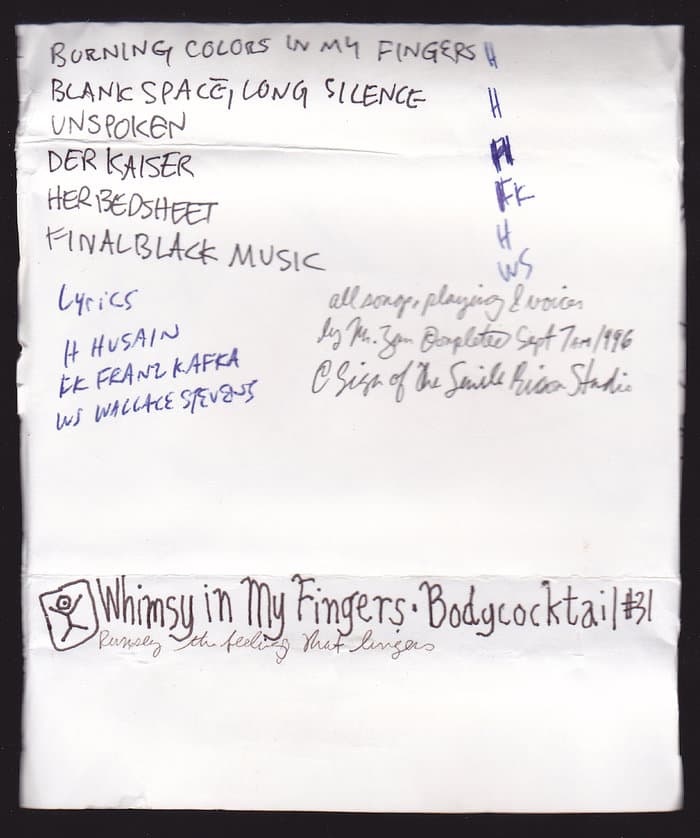 BURNING COLORS IN MY FINGERS H
BLANK SPACE, LONG SILENCE H
UNSPOKEN H
DER KAISER FK
HER BEDSHEET H
FINAL BLACK MUSIC WS
Lyrics
H HUSAIN
FK FRANZ KAFKA
WS WALLACE STEVENS
all songs, playing & voices
by Mr. Completed Sept 1996
© Sign of The Studio
Whimsy in My Fingers · Bodycocktail #31
the feeling that lingers